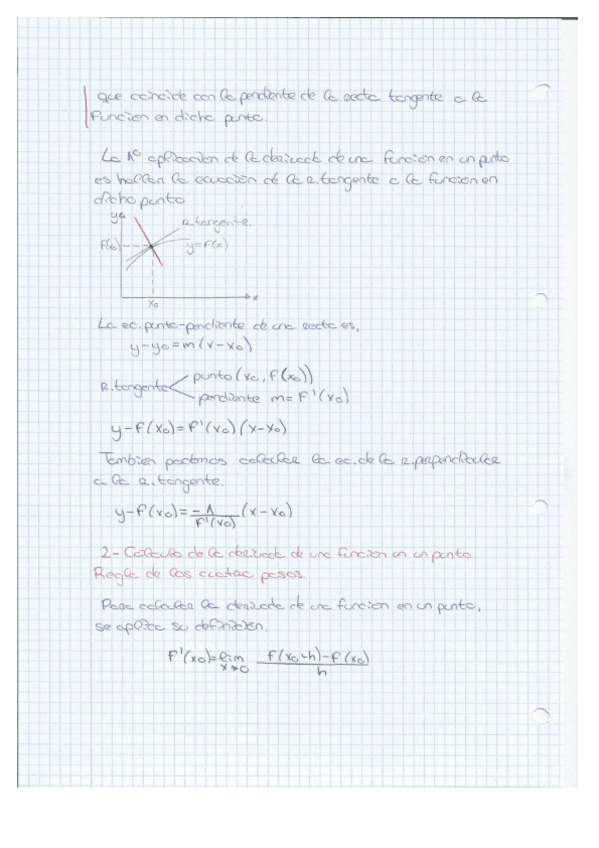 que coincide con la pendiente de la recta tangente a la
función en dicho punto.
La 1º aplicación de la derivada de una función en un punto
es hallar la ecuación de la R.tangente a la función en
dicho punto
y
R.tangente.
f(x0)
y=f(x)
x0
x
La ec. punto-pendiente de una recta es,
y-y0=m(x-x0)
R.tangente
punto(x0, f(x0))
pendiente m=f'(x0)
y-f(x0)=f'(x0)(x-x0)
Tambien podemos calcular la ec. de la R.perpendicular
a la R.tangente.
y-f(x0)=-1/f'(x0) (x-x0)
2- Calculo de la derivada de una función en un punto.
Regla de los cuatro pasos.
Para calcular la derivada de una función en un punto,
se aplica su definición.
f'(x0)=lim x→0 f(x0-h)-f(x0)/h